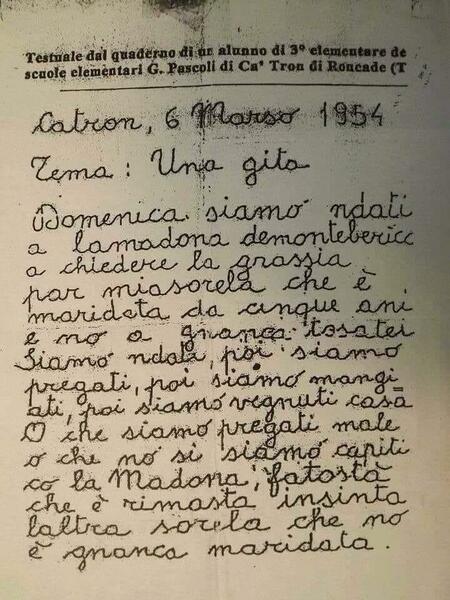 Testuale dal quaderno di un alunno di 3° elementare de
scuole elementari G. Pascoli di Ca' Tron di Roncade (T
Catron, 6 Marso 1954
Tema : Una gita
Domenica siamo ndati
a lamadona demontebericc
a chiedere la grassia
par miasorela che è
maridata da cinque ani
e no a gnanca tosatei
Siamo ndati, poi siamo
pregati, poi siamo mangi
ati, poi siamo vegnuti casa
O che siamo pregati male
o che no si siamo capiti
co la Madona, fatostà
che è rimasta insinta
laltra sorela che no
è gnanca maridata.